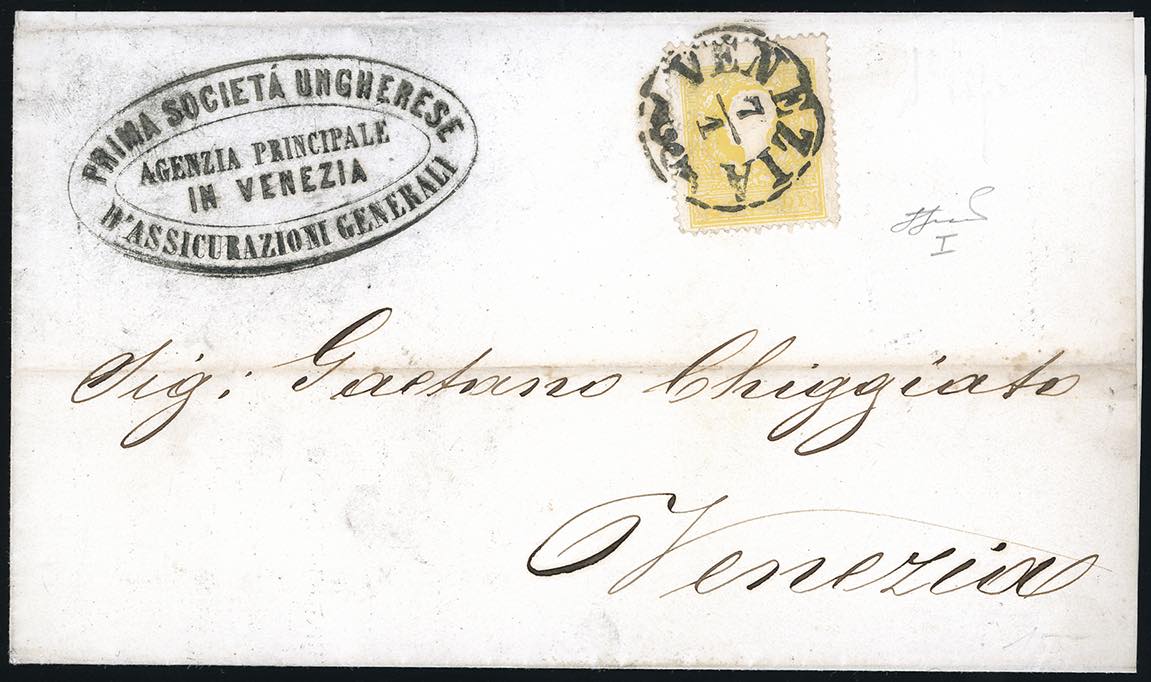 PRIMA SOCIETÁ UNGHERESE
AGENZIA PRINCIPALE
IN VENEZIA
D'ASSICURAZIONI GENERALI
VENEZIA
7/1
I
Sig: Gaetano Chiggiato
Venezia